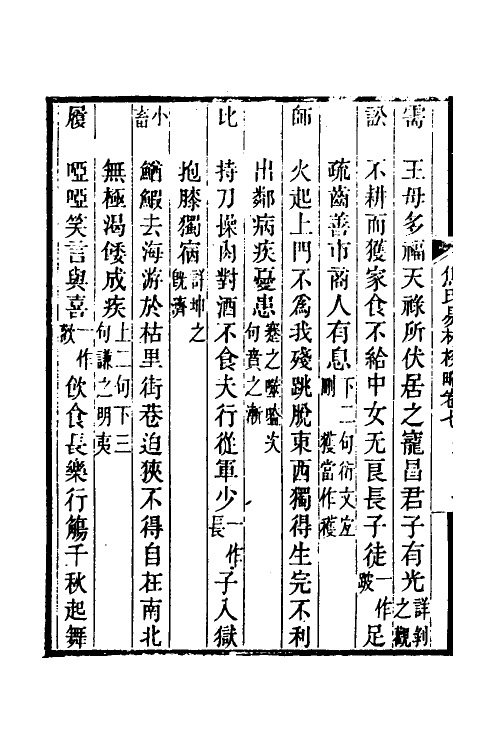 焦氏易林校略卷七
需 王母多福天祿所伏居之寵昌君子有光詳剝之觀
訟 不耕而獲家食不給中女无良長子徒一作跛足
疏齒善市商人有息下二句衍文宜刪獲當作穫
師 火起上門不為我殘跳脫東西獨得生完不利
出鄰病疾憂患蹇之噬嗑次句賁之漸
比 持刀操肉對酒不食夫行從軍少一作長子入獄
抱膝獨宿詳坤之旣濟
小畜 鰌鰕去海游於枯里街巷迫狹不得自在南北
無極渴倭成疾上二句下三句謙之明夷
履 啞啞笑言與喜一作歡飲食長樂行觴千秋起舞